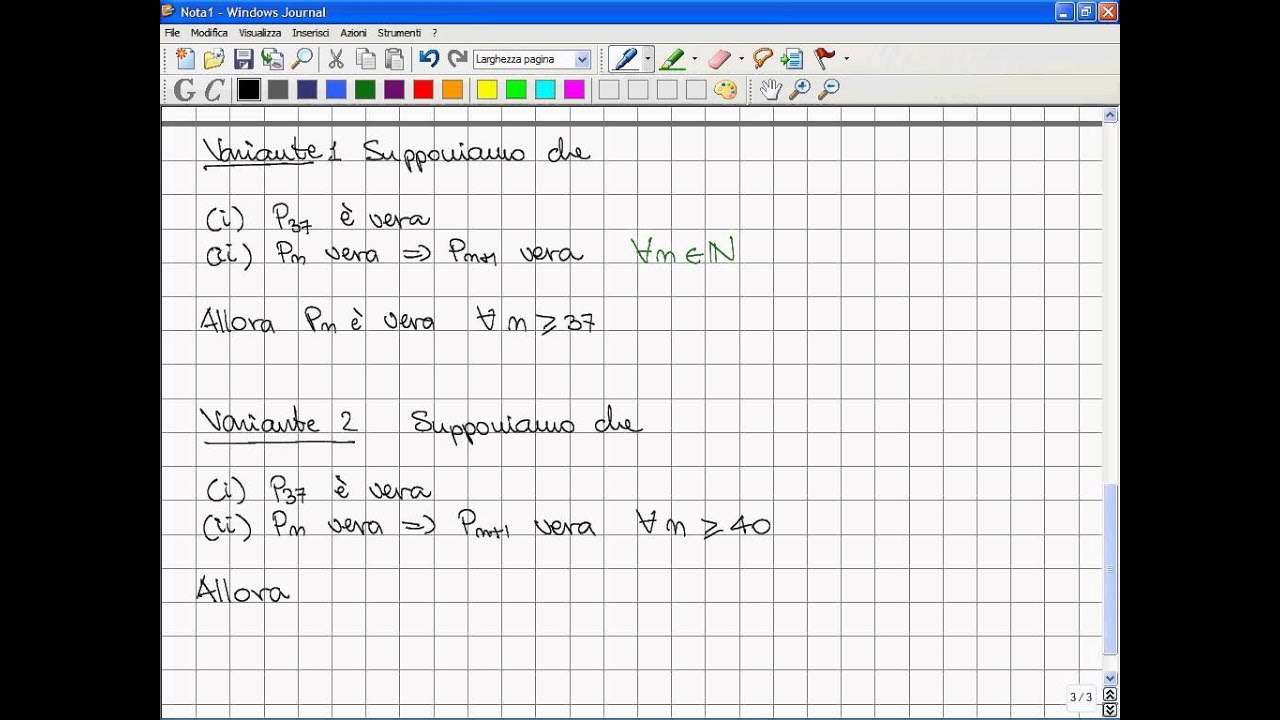 Nota1 - Windows Journal
File Modifica Visualizza Inserisci Azioni Strumenti ?
Larghezza pagina
G C
Variante 1 Supponiamo che
(i) P37 è vera
(ii) Pn vera => Pn+1 vera ∀n∈N
Allora Pn è vera ∀ n ⩾ 37
Variante 2 Supponiamo che
(i) P37 è vera
(ii) Pn vera => Pn+1 vera ∀ n ⩾ 40
Allora
3 / 3